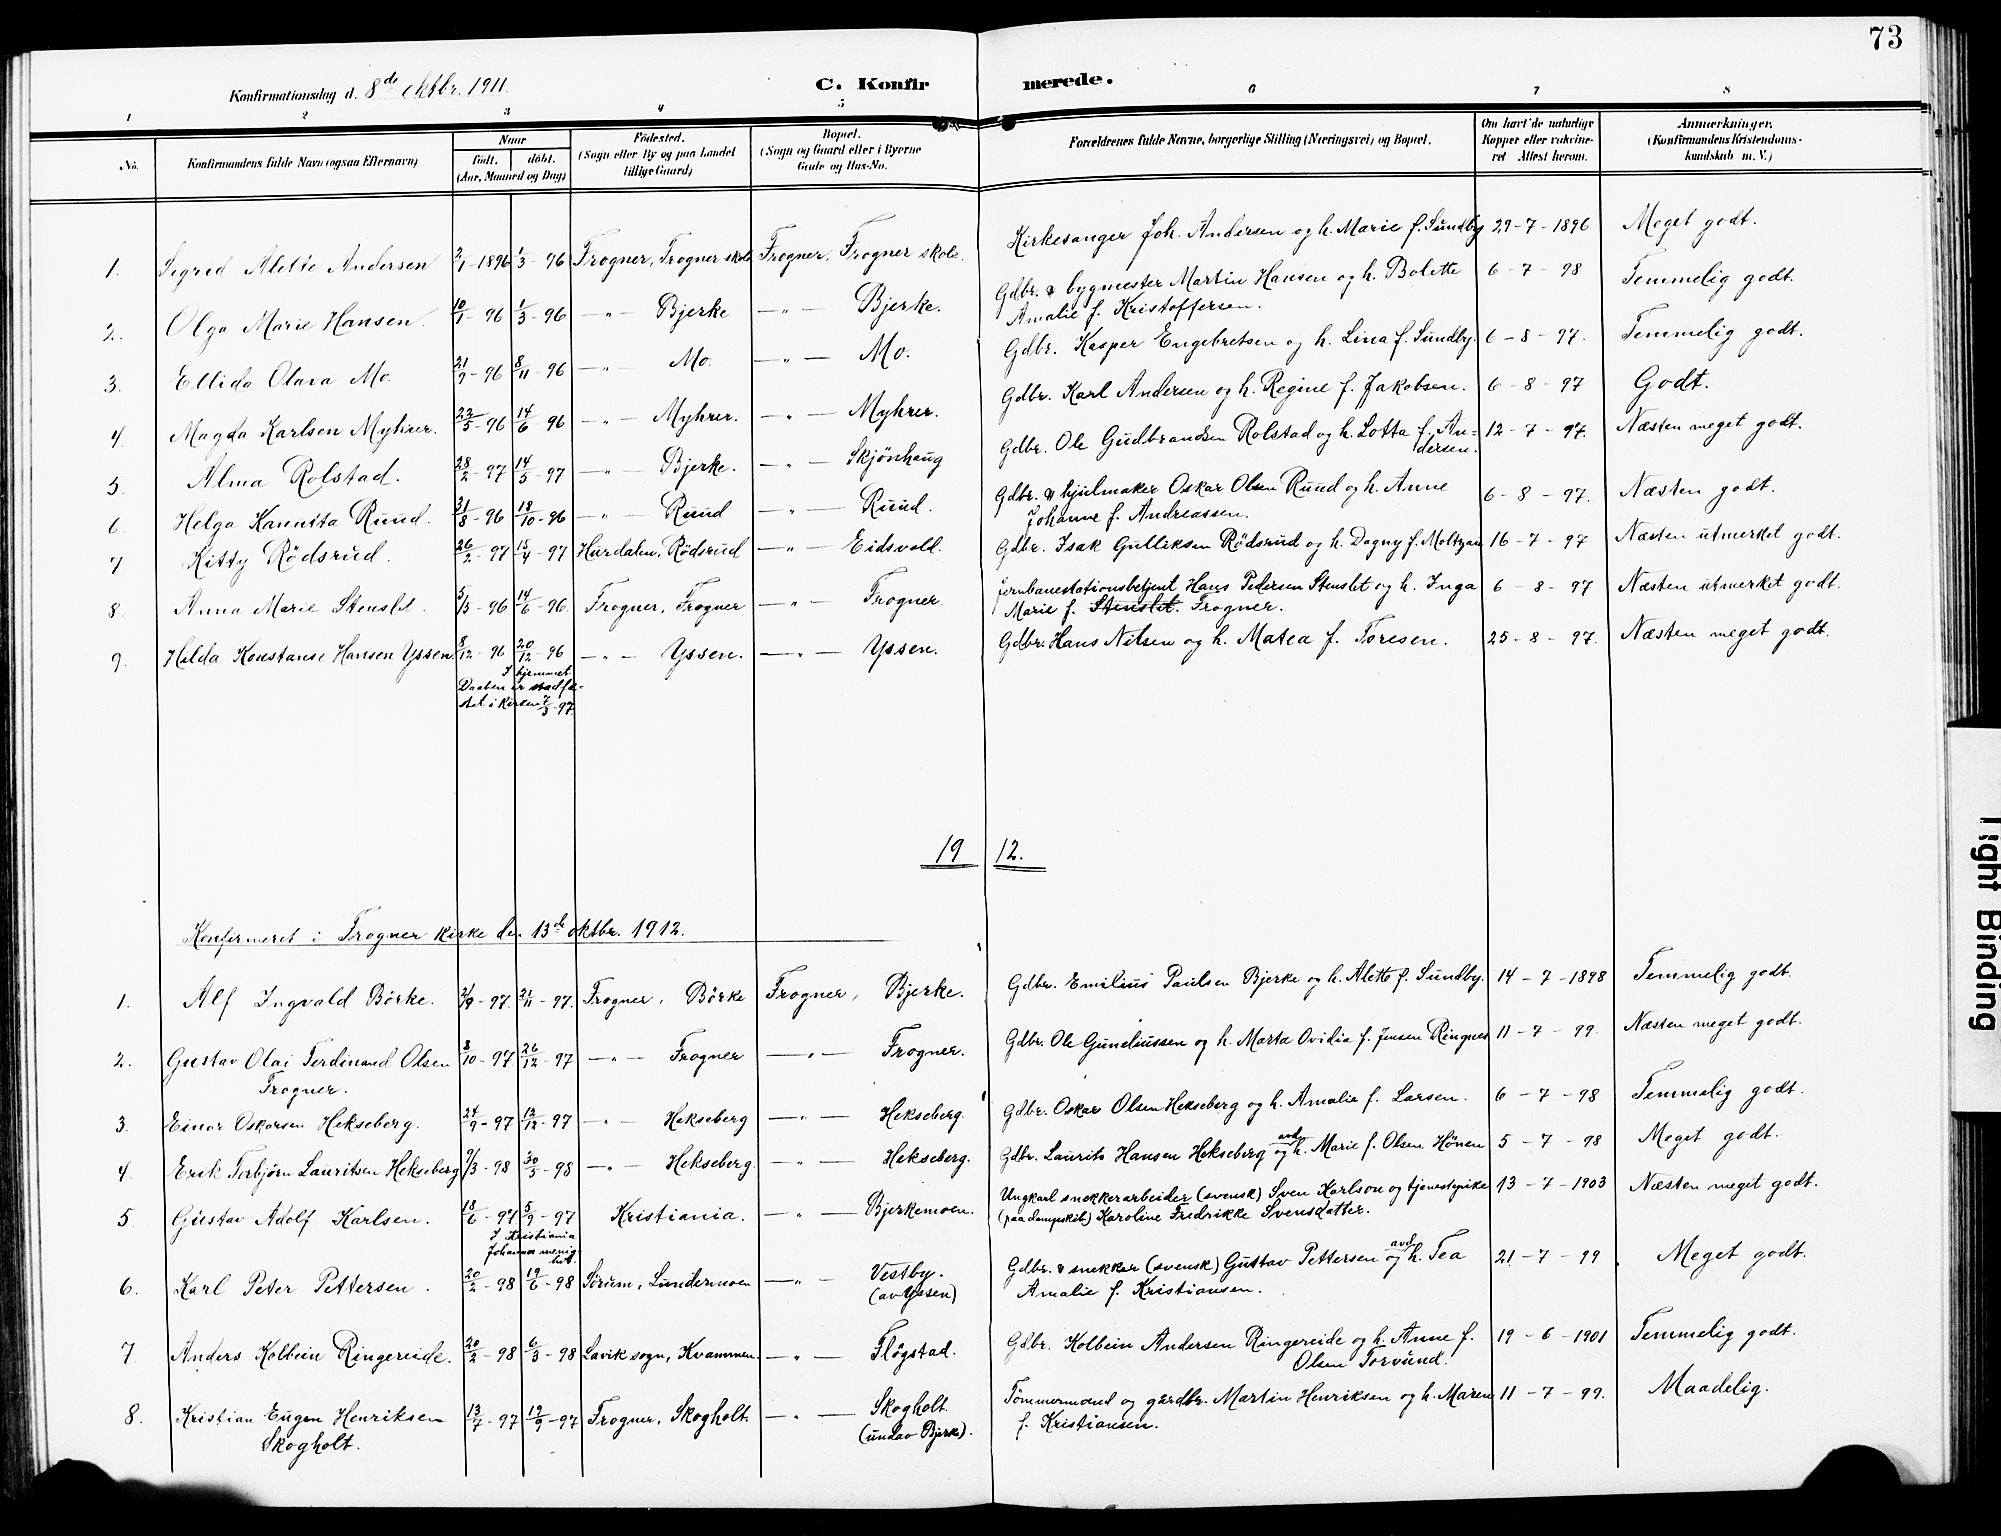 73
Konfirmationsdag d. 8de oktbr. 1911.
C. Konfirmerede.
1 2 3 4 5 6 7 8
No. Konfirmandens fulde Navn (ogsaa Efternavn) Naar født. døbt. (Aar, Maaned og Dag) Fødested. (Sogn eller By og paa Landet tillige Gaard) Bopæl. (Sogn og Gaard eller i Byerne Gade og Hus-No. Forældrenes fulde Navne, borgerlige Stilling (Næringsvei) og Bopæl. Om havt de naturlige Kopper eller vakcineret Attest herom. Anmærkninger. (Konfirmandens Kristendomskundskab m. V.)
1. Sigred Alette Andersen 2/1-1896 1/3-96 Frogner, Frogner skole Frogner, Frogner skole. Kirkesanger Joh. Andersen og h. Marie f. Sundby 29-7-1896 Meget godt.
2. Olga Marie Hansen. 10/1-96 1/3-96 -"- Bjerke -"- Bjerke. Gdbr. & bygmester Martin Hansen og h. Bolette 6-7-98 Temmelig godt.
Amalie f. Kristoffersen.
3. Ellida Olava Mo. 21/9-96 8/11-96 -"- Mo. -"- Mo. Gdbr. Kasper Engebretsen og h. Lina f. Sundby. 6-8-97. Temmelig godt.
4. Magda Karlsen Myhrer. 23/5-96 14/6-96 -"- Myhrer. -"- Myhrer. Gdbr. Karl Andersen og h. Regine f. Jakobsen. 6-8-97 Godt.
5. Alma Rolstad. 28/2-97 14/5-97 -"- Bjerke. -"- Skjønhaug Gdbr. Ole Gudbrandsen Rolstad og h. Lotta f. An- 12-7-97. Næsten meget godt.
dersen.
6. Helga Ruud. 31/8-96 18/10-96 -"- Ruud -"- Ruud. Gdbr. & hjulmaker Oskar Olsen Ruud og h. Anne 6-8-97. Næsten godt.
Johanne f. Andreassen.
7 Kitty Rödsrud. 26/2-97 15/4-97 Hurdalen, Rödsrud -"- Eidsvold. Gdbr. Isak Gulliksen Rödsrud og h. Dagny f. Moltzau 16-7-97 Næsten utmerket godt.
8. Anna Marie Stenslet. 5/3-96 14/6-96. Frogner, Frogner -"- Frogner. Jernbanestationsbetjent Hans Pedersen Stenslet og h. Inga 6-8-97 Næsten utmerket godt.
Marie f. Stenslet. Frogner.
9. Hilda Konstanse Hansen Yssen 8/12-96 20/12-96 -"- Yssen. -"- Yssen. Gdbr. Hans Nilsen og h. Matea f. Toresen. 25-8-97. Næsten meget godt.
I hjemmet
Daaben er stadfæ-
stet i kirken 7/3-97.
19 12.
Konfirmeret i Frogner kirke den 13de oktbr. 1912.
1. Alf Ingvald Börke. 2/9-97. 21/11-97. Frogner, Börke Frogner, Bjerke. Gdbr. Emilius Paulsen Bjerke og h. Alette f. Sundby. 14-7-1898 Temmelig godt.
2. Gustav Olai Ferdinand Olsen 8/10-97 26/12-97 -"- Frogner -"- Frogner. Gdbr. Ole Gundiussen og h. Marta Ovidia f. Jensen Ringnes 11-7-99. Næsten meget godt.
Frogner.
3. Einar Oskarsen Hekseberg. 24/9-97 12/12-97 -"- Hekseberg -"- Hekseberg. Gdbr. Oskar Olsen Hekseberg og h. Amalie f. Larsen. 6-7-98 Temmelig godt.
4. Erik Torbjørn Lauritsen Hekseberg 7/3-98 30/5-98 -"- Hekseberg. -"- Hekseberg. Gdbr. Laurits Hansen Hekseberg og avd. h. Marie f. Olsen Hönen 5-7-98 Meget godt.
5 Gustav Adolf Karlsen. 18/6-97 5/9-97 Kristiania. -"- Bjerkemoen. Ungkarl snekkerarbeider (svensk) Sven Karlson og tjenestepike 13-7-1903 Næsten meget godt.
I Kristiania
Johannes menig-
het.
(paa dampskib) Karoline Fredrikke Svensdatter.
6. Karl Peter Pettersen. 20/2-98 19/6-98 Sørum, Lundermoen -"- Vestby. Gdbr. & snekker (svensk) Gustav Pettersen og avd. h. Tea 21-7-99. Meget godt.
(av Yssen) Amalie f. Kristiansen.
7. Anders Kolbein Ringereide. 20/2-98 6/3-98 Lavik sogn, Kvammen. -"- Flögstad. Gdbr. Kolbein Andersen Ringereide og h. Anne f. 19-6-1901 Temmelig godt.
Olsen Torvund.
8. Kristian Eugen Henriksen 13/7-97 12/9-97 Frogner, Skogholt. -"- Skogholt. Tömmermand og gårdbr. Martin Henriksen og h. Maren 11-7-99. Maadelig.
Skogholt. (undav Bjerk). f. Kristiansen.
Tight Binding